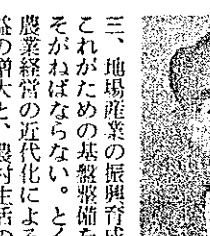 三、地場産業の振興育成
これがための基盤整備を
そがねばならない。とく
農業経営の近代化による
益の増大と、農村生活の